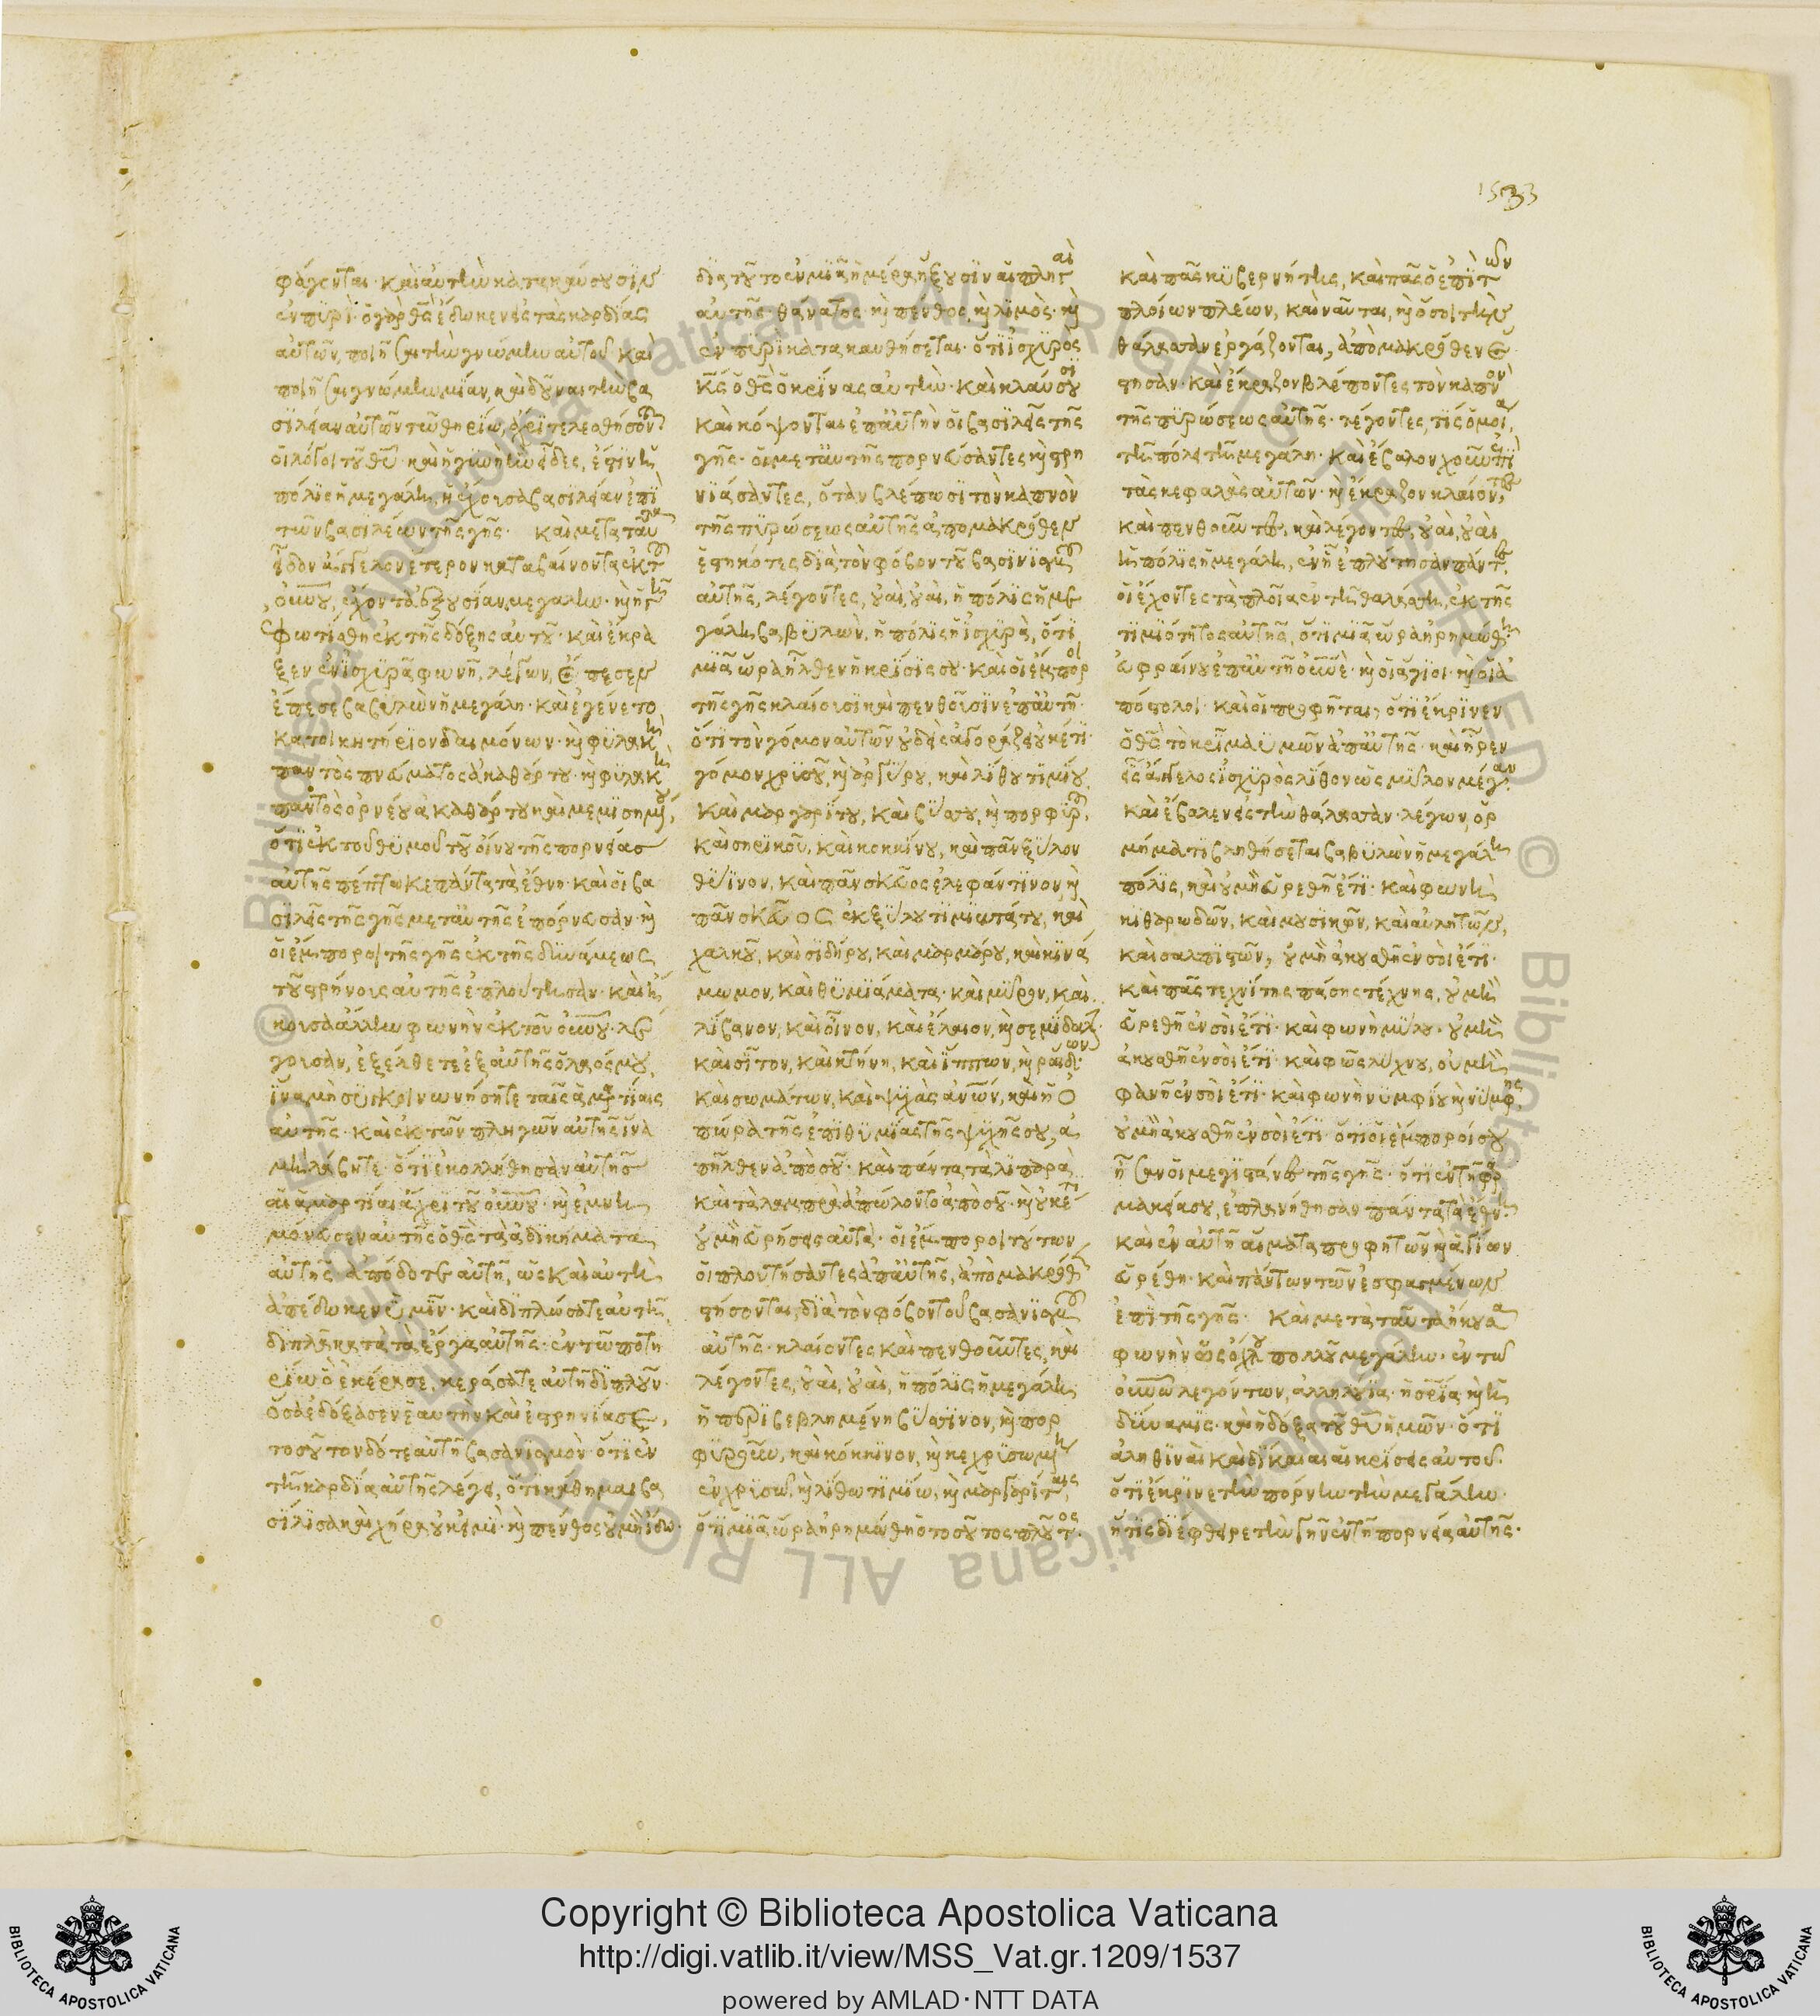 1533
φάγονται· καὶ αὐτὴν κατακαύσουσιν
ἐν πυρί· ὁ γὰρ θς ἔδωκεν εἰς τὰς καρδίας
αὐτῶν, ποιῆσαι τὴν γνώμην αὐτοῦ καὶ
ποιῆσαι γνώμην μίαν, καὶ δοῦναι τὴν βα
σιλείαν αὐτῶν τῶ θηρίω, ἄχρι τελεσθήσονται
οἱ λόγοι τοῦ θυ· καὶ ἡ γυνὴ ἣν εἶδες, ἔστιν ἡ
πόλις ἡ μεγάλη, ἡ ἔχουσα βασιλείαν ἐπὶ
τῶν βασιλέων τῆς γῆς· καὶ μετὰ ταῦτα
εἶδον ἄγγελον ἕτερον καταβαίνοντα ἐκ τοῦ
οὐνου, ἔχοντα ἐξουσίαν μεγάλην· καὶ ἡ γῆ
ἐφωτίσθη ἐκ τῆς δόξης αὐτοῦ· καὶ ἔκρα
ξεν ἐν ἰσχυρᾶ φωνῆ, λέγων, ἔπεσεν
ἔπεσε βαβυλὼν ἡ μεγάλη· καὶ ἐγένετο
κατοικητήριον δαιμόνων· καὶ φυλακὴ
παντὸς πνεύματος ἀκαθάρτου· καὶ φυλακὴ
παντὸς ὀρνέου ἀκαθάρτου καὶ μεμισημένου,
ὅτι ἐκ τοῦ θυμοῦ τοῦ οἴνου τῆς πορνείας
αὐτῆς πέπτωκε πάντα τὰ ἔθνη· καὶ οἱ βα
σιλεῖς τῆς γῆς μετ' αὐτῆς ἐπόρνευσαν· καὶ
οἱ ἔμποροι τῆς γῆς ἐκ τῆς δυνάμεως
τοῦ στρήνους αὐτῆς ἐπλούτησαν· καὶ ἤ
κουσα ἄλλην φωνὴν ἐκ τοῦ οὐνου· λέ
γουσαν, ἐξέλθετε ἐξ αὐτῆς ὁ λαός μου,
ἵνα μὴ συγκοινωνήσητε ταῖς ἁμαρτίαις
αὐτῆς· καὶ ἐκ τῶν πληγῶν αὐτῆς ἵνα
μὴ λάβητε· ὅτι ἐκολλήθησαν αὐτῆς
αἱ ἁμαρτίαι ἄχρι τοῦ οὐνου· καὶ ἐμνη
μόνευσεν αὐτῆς ὁ θς τὰ ἀδικήματα
αὐτῆς ἀπόδοτε αὐτῆ, ὡς καὶ αὐτὴ
ἀπέδωκεν ὑμῖν· καὶ διπλώσατε αὐτῆ
διπλᾶ κατὰ τὰ ἔργα αὐτῆς· ἐν τῶ ποτη
ρίω ὃ ἐκέρασε, κεράσατε αὐτῆ διπλοῦν·
ὅσα ἐδόξασεν ἑαυτὴν καὶ ἐστρηνίασε,
τοσοῦτον δότε αὐτῆ βασανισμὸν· ὅτι ἐν
τῆ καρδία αὐτῆς λέγει, ὅτι κάθημαι βα
σίλισσα καὶ χήρα οὐκ εἰμὶ· καὶ πένθος οὐ μὴ ἴδω·
διὰ τοῦτο ἐν μιᾶ ἡμέρα ἥξουσιν αἱ πληγαὶ
αὐτῆς· θάνατος· καὶ πένθος, καὶ λιμὸς· καὶ
ἐν πυρὶ κατακαυθήσεται· ὅτι ἰσχυρὸς
κς ὁ θς ὁ κρίνας αὐτὴν· καὶ κλαύσουσι
καὶ κόψονται ἐπ' αὐτὴν οἱ βασιλεῖς τῆς
γῆς· οἱ μετ' αὐτῆς πορνεύσαντες καὶ στρη
νιάσαντες, ὅταν βλέπωσι τὸν καπνὸν
τῆς πυρώσεως αὐτῆς ἀπὸ μακρόθεν
ἑστηκότες διὰ τὸν φόβον τοῦ βασανισμοῦ
αὐτῆς, λέγοντες, οὐαὶ, οὐαὶ, ἡ πόλις ἡ με
γάλη βαβυλὼν, ἡ πόλις ἡ ἰσχυρὰ, ὅτι
μιᾶ ὥρα ἦλθεν ἡ κρίσις σου· καὶ οἱ ἔμποροι
τῆς γῆς κλαίουσι καὶ πενθοῦσιν ἐπ' αὐτῆ·
ὅτι τὸν γόμον αὐτῶν οὐδεὶς ἀγοράζει οὐκέτι·
γόμον χρυσοῦ, καὶ ἀργύρου, καὶ λίθου τιμίου
καὶ μαργαρίτου, καὶ βύσσου, καὶ πορφύρας,
καὶ σηρικοῦ, καὶ κοκκίνου, καὶ πᾶν ξύλον
θύϊνον, καὶ πᾶν σκεῦος ἐλεφάντινον, καὶ
πᾶν σκεῦος ἐκ ξύλου τιμιωτάτου, καὶ
χαλκοῦ, καὶ σιδήρου, καὶ μαρμάρου, καὶ κινά
μωμον, καὶ θυμιάματα· καὶ μύρον, καὶ
λίβανον, καὶ οἶνον, καὶ ἔλαιον, καὶ σεμίδαλιν·
καὶ σῖτον, καὶ κτήνη, καὶ ἵππων, καὶ ῥαιδῶν·
καὶ σωμάτων, καὶ ψυχὰς ἀνων, καὶ ἡ ὀ
πώρα τῆς ἐπιθυμίας τῆς ψυχῆς σου, ἀ
πῆλθεν ἀπὸ σοῦ· καὶ πάντα τὰ λιπαρὰ
καὶ τὰ λαμπρὰ ἀπώλοντο ἀπὸ σοῦ· καὶ οὐκέτι
οὐ μὴ εὑρήσεις αὐτὰ· οἱ ἔμποροι τούτων
οἱ πλουτήσαντες ἀπ' αὐτῆς, ἀπὸ μακρόθεν
στήσονται, διὰ τὸν φόβον τοῦ βασανισμοῦ
αὐτῆς· κλαίοντες καὶ πενθοῦντες, καὶ
λέγοντες, οὐαὶ, οὐαὶ, ἡ πόλις ἡ μεγάλη
ἡ περιβεβλημένη βύσσινον, καὶ πορ
φυροῦν, καὶ κόκκινον, καὶ κεχρυσωμένη
ἐν χρυσῶ καὶ λίθω τιμίω, καὶ μαργαρίταις,
ὅτι μιᾶ ὥρα ἠρημώθη ὁ τοσοῦτος πλοῦτος·
καὶ πᾶς κυβερνήτης, καὶ πᾶς ὁ ἐπὶ τῶν
πλοίων πλέων, καὶ ναῦται, καὶ ὅσοι τὴν
θάλασσαν ἐργάζονται, ἀπὸ μακρόθεν ἔ
στησαν· καὶ ἔκραζον βλέποντες τὸν καπνὸν
τῆς πυρώσεως αὐτῆς· λέγοντες, τίς ὁμοία
τῆ πόλει τῆ μεγάλη· καὶ ἔβαλον χοῦν ἐπὶ
τὰς κεφαλὰς αὐτῶν· καὶ ἔκραζον κλαίοντες,
καὶ πενθοῦντες, καὶ λέγοντες, οὐαὶ, οὐαὶ
ἡ πόλις ἡ μεγάλη, ἐν ἧ ἐπλούτησαν πάντες
οἱ ἔχοντες τὰ πλοῖα ἐν τῆ θαλάσση, ἐκ τῆς
τιμιότητος αὐτῆς, ὅτι μιᾶ ὥρα ἠρημώθη·
εὐφραίνου ἐπ' αὐτῆ οὐνὲ· καὶ οἱ ἅγιοι· καὶ οἱ ἀ
πόστολοι· καὶ οἱ προφῆται, ὅτι ἔκρινεν
ὁ θς τὸ κρῖμα ὑμῶν ἀπ' αὐτῆς· καὶ ἦρεν
εἷς ἄγγελος ἰσχυρὸς λίθον ὡς μύλον μέγαν
καὶ ἔβαλεν εἰς τὴν θάλασσαν· λέγων, ὁρ
μήματι βληθήσεται βαβυλὼν ἡ μεγάλη
πόλις, καὶ οὐ μὴ εὑρεθῆ ἔτι· καὶ φωνὴ
κιθαρωδῶν, καὶ μουσικῶν, καὶ αὐλητῶν,
καὶ σαλπιστῶν, οὐ μὴ ἀκουσθῆ ἐν σοὶ ἔτι·
καὶ πᾶς τεχνίτης πάσης τέχνης, οὐ μὴ
εὑρεθῆ ἐν σοὶ ἔτι· καὶ φωνὴ μύλου· οὐ μὴ
ἀκουσθῆ ἐν σοὶ ἔτι· καὶ φῶς λύχνου, οὐ μὴ
φανῆ ἐν σοὶ ἔτι· καὶ φωνὴ νυμφίου καὶ νύμφης,
οὐ μὴ ἀκουσθῆ ἐν σοὶ ἔτι· ὅτι οἱ ἔμποροί σου
ἦσαν οἱ μεγιστάνες τῆς γῆς· ὅτι ἐν τῆ φαρ
μακεία σου, ἐπλανήθησαν πάντα τὰ ἔθνη·
καὶ ἐν αὐτῆ αἵματα προφητῶν καὶ ἁγίων
εὑρέθη· καὶ πάντων τῶν ἐσφαγμένων
ἐπὶ τῆς γῆς· καὶ μετὰ ταῦτα ἤκουσα
φωνὴν ὡς ὄχλου πολλοῦ μεγάλην· ἐν τῶ
οὐνω λεγόντων, ἀλληλούϊα· ἡ σρία καὶ ἡ
δύναμις· καὶ ἡ δόξα τοῦ θυ ἡμῶν· ὅτι
ἀληθιναὶ καὶ δίκαιαι αἱ κρίσεις αὐτοῦ·
ὅτι ἔκρινε τὴν πόρνην τὴν μεγάλην·
ἥτις διέφθειρε τὴν γῆν ἐν τῆ πορνεία αὐτῆς·
© Biblioteca Apostolica Vaticana ALL RIGHTS RESERVED
Copyright © Biblioteca Apostolica Vaticana
http://digi.vatlib.it/view/MSS_Vat.gr.1209/1537
powered by AMLAD·NTT DATA
BIBLIOTECA APOSTOLICA VATICANA
BIBLIOTECA APOSTOLICA VATICANA